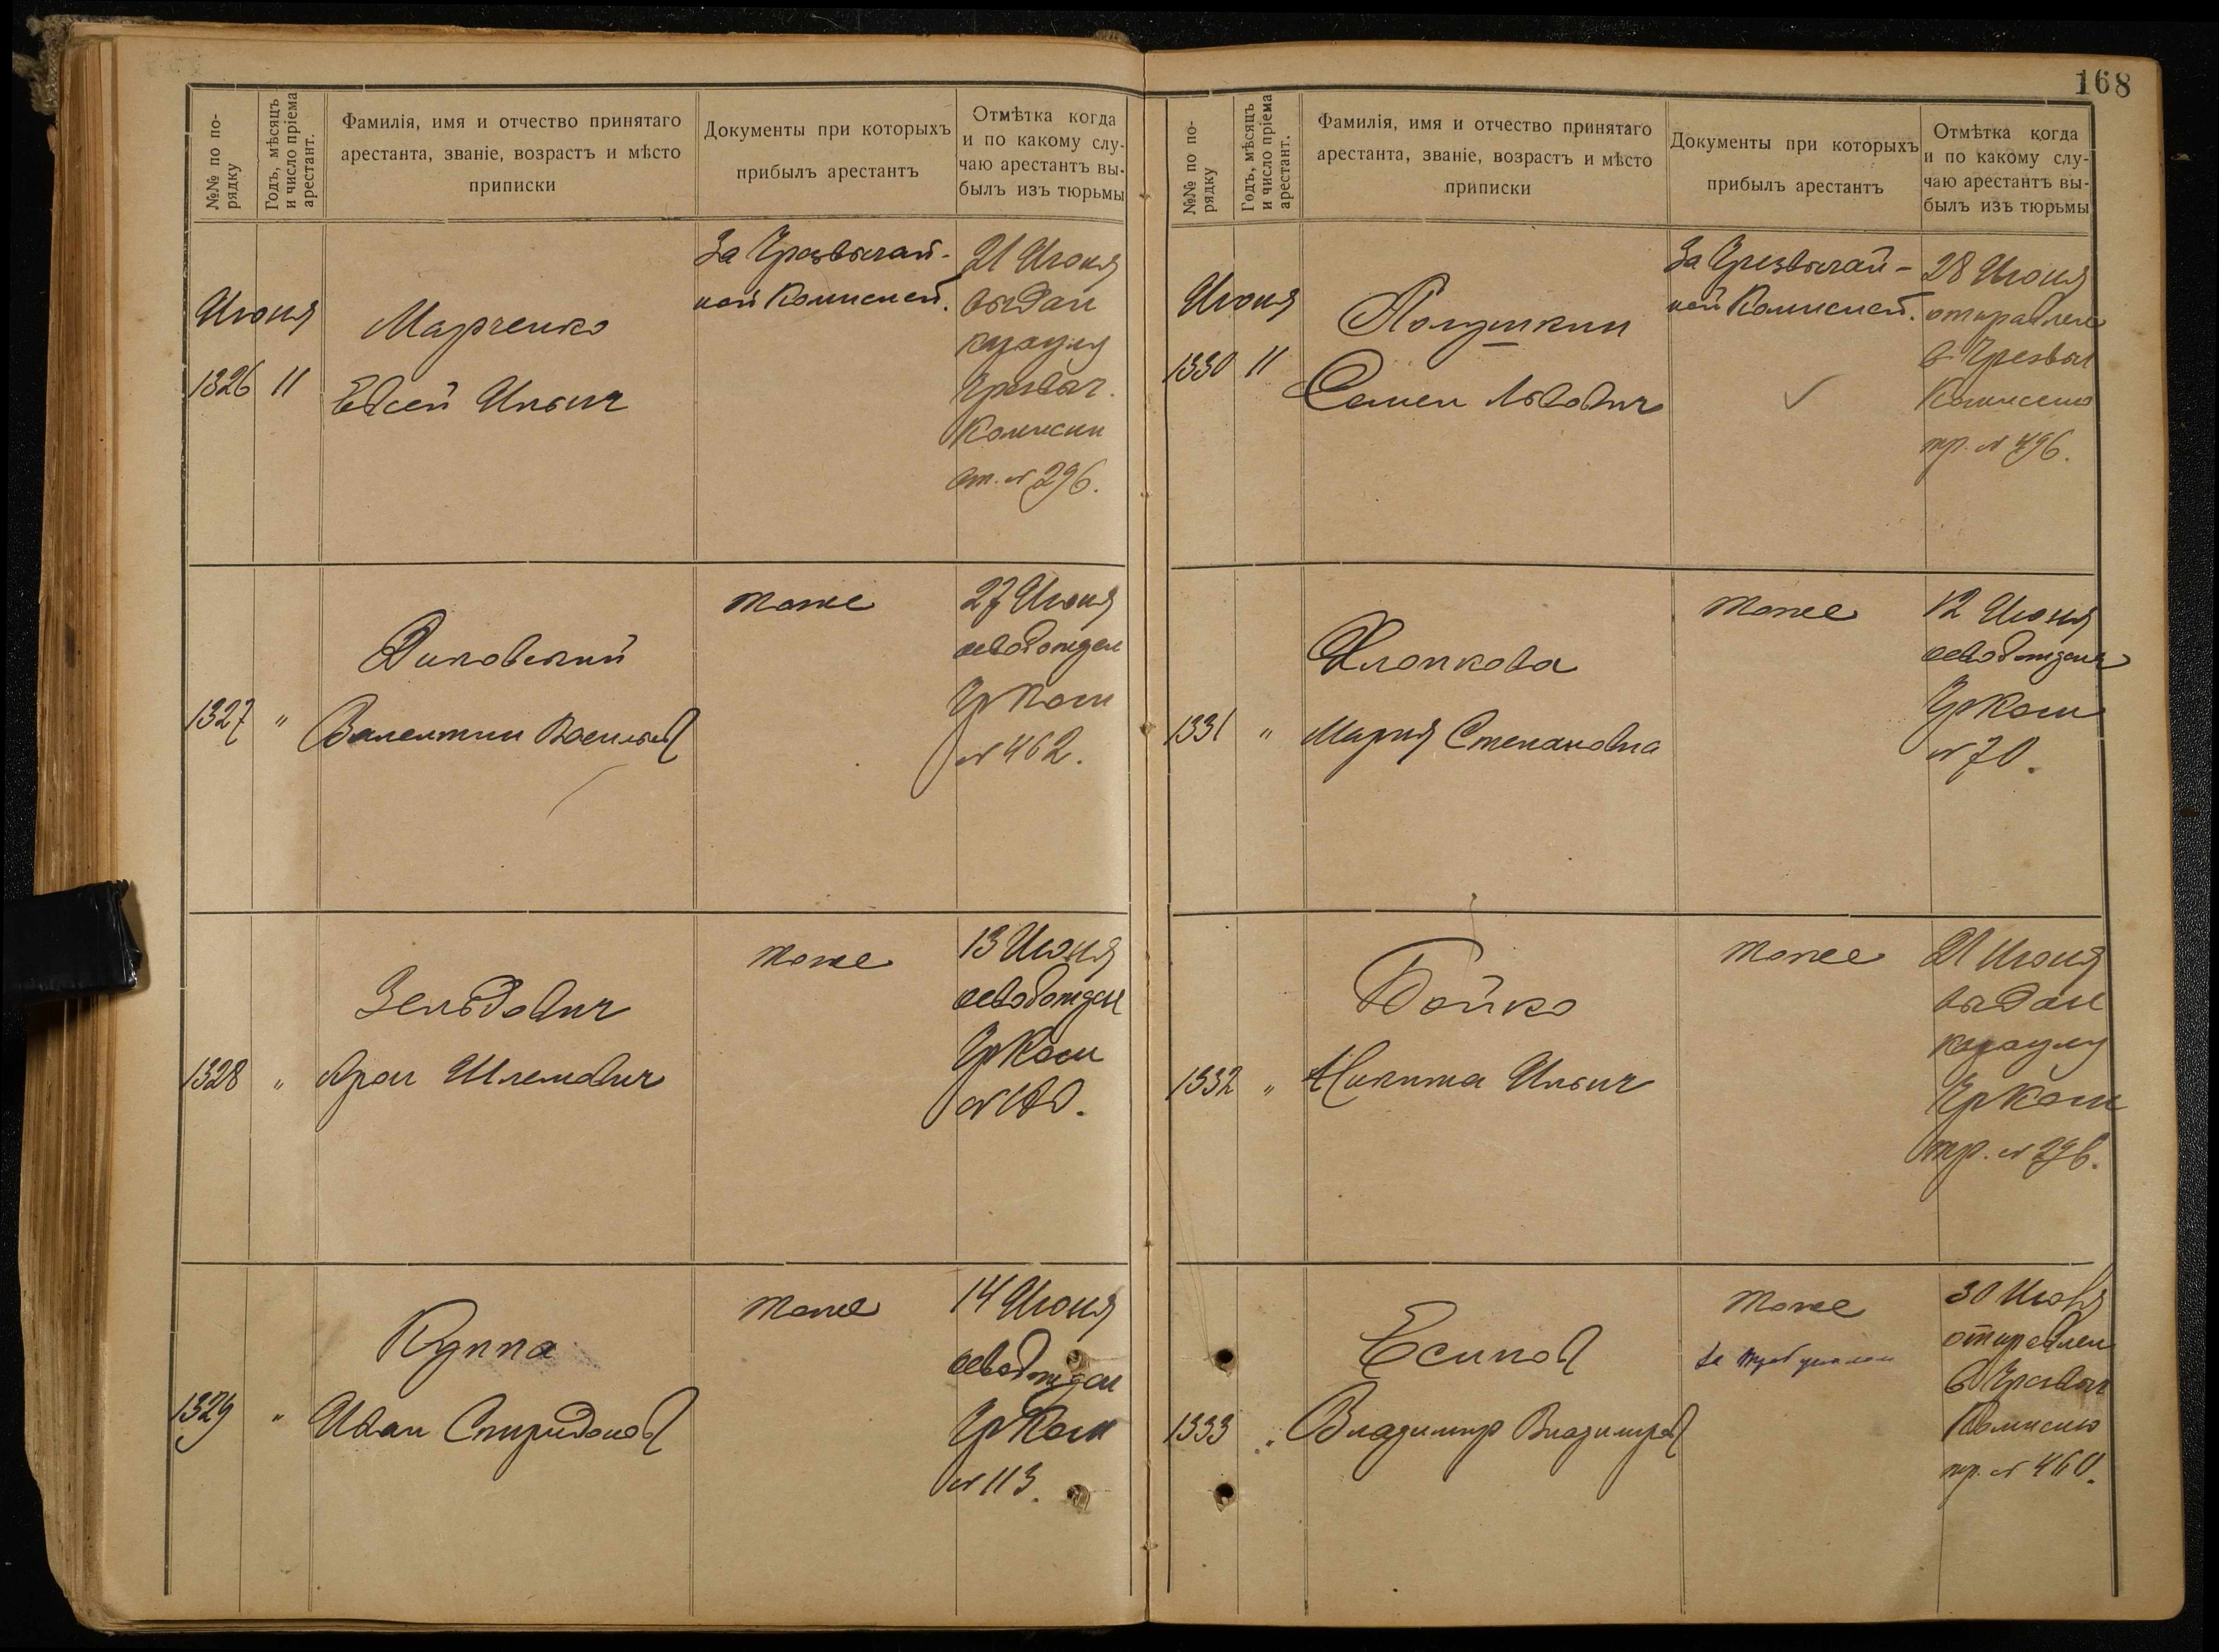 №№ по по-
рядку
Годъ, мѣсяцъ
и число пріема
арестант.
Фамилія, имя и отчество принятаго
арестанта, званіе, возрастъ и мѣсто
приписки
Документы при которыхъ
прибылъ арестантъ
Отмѣтка когда
и по какому слу-
чаю арестантъ вы-
былъ изъ тюрьмы
Июня
1326 11
Марченко
Евсей Ильич
За Чрезвычай-
ной Комисией.
21 Июня
выдан
караулу
Чрезвыч.
Комисии
от. № 296.
1327 "
Валентин Васильев
тоже
27 Июня
освобожден
ЧрКом
№ 462.
1328 "
Зельдович
Арон Шлемович
тоже
13 Июня
освобожден
ЧрКом
1329 "
Куппа
Иван Спиридонов
тоже
14 Июня
освобожден
ЧрКом
№ 113.
168
№№ по по-
рядку
Годъ, мѣсяцъ
и число пріема
арестант.
Фамилія, имя и отчество принятаго
арестанта, званіе, возрастъ и мѣсто
приписки
Документы при которыхъ
прибылъ арестантъ
Отмѣтка когда
и по какому слу-
чаю арестантъ вы-
былъ изъ тюрьмы
Июня
1330 11
Полушкин
Семен Львович
За Чрезвычай-
ной Комисией.
28 Июня
отправлен
в Чрезвыч
Комиссию
тр. № 496.
1331 "
Хлопкова
Мария Степановна
тоже
12 Июня
освобождена
ЧрКом
№ 70.
1332 "
Бойко
Никита Ильич
тоже
21 Июня
выдан
караулу
ЧрКом
тр. № 296.
1333 "
Есипов
Владимир Владимиров
тоже
за трибуналом
30 Июня
отправлен
в Чрезвыч
Комисию
тр. № 460.